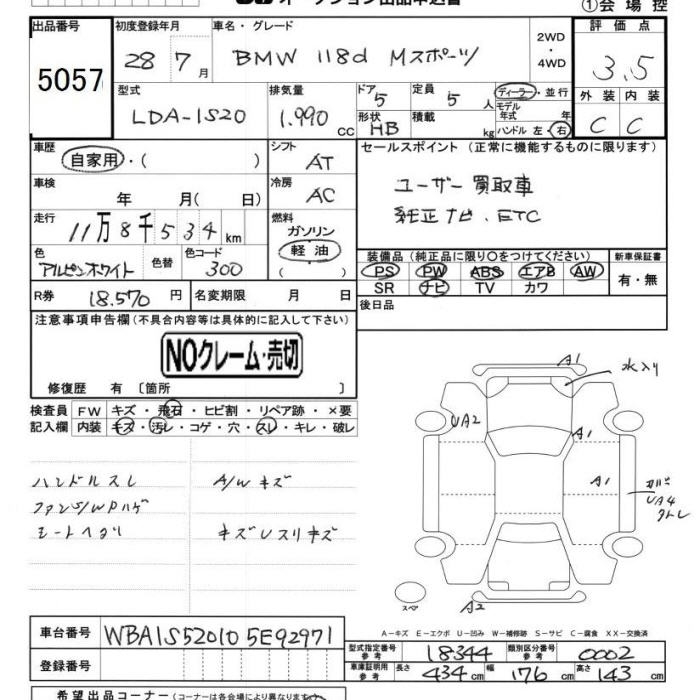 オークション出品申込書
①会場控
出品番号 初度登録年月 車名・グレード 2WD・4WD 評価点
5057 28年7月 BMW 118d Mスポーツ 3.5
型式 排気量 ドア 定員 ディーラー・並行 外装 内装
LDA-1S20 1.990cc 5 5人 モデル年式 年 C C
形状 積載 ハンドル 左・右
HB kg
車歴 シフト セールスポイント(正常に機能するものに限ります)
自家用・( ) AT
車検 冷房 ユーザー買取車
年 月(日) AC 純正ナビ、ETC
走行 燃料
11万8千534km ガソリン
軽油
( )
色 色替 色コード 装備品(純正品に限り○をつけてください) 新車保証書
アルピンホワイト 300 PS PW ABS エアB AW 有・無
SR ナビ TV カワ
R券 18.570円 名変期限 月 日 後日品
注意事項申告欄(不具合内容等は具体的に記入して下さい)
NOクレーム・売切
修復歴 有〔箇所 〕
検査員記入欄 FW キズ・飛石・ヒビ割・リペア跡・×要
内装 キズ・汚レ・コゲ・穴・スレ・キレ・破レ
ハンドルスレ A/Wキズ
ファンS/WPハゲ
シートヘタリ キズUスリキズ
A1 水入り
UA2 A1
A1 カバーUA4
スペア A2
A-キズ E-エクボ U-凹み W-補修跡 S-サビ C-腐食 XX-交換済
車台番号 WBA1S520105E92971
登録番号
型式指定番号 参考 18344 類別区分番号 参考 0002
車庫証明用 参考 長さ 434cm 幅 176cm 高さ 143cm
希望出品コーナー